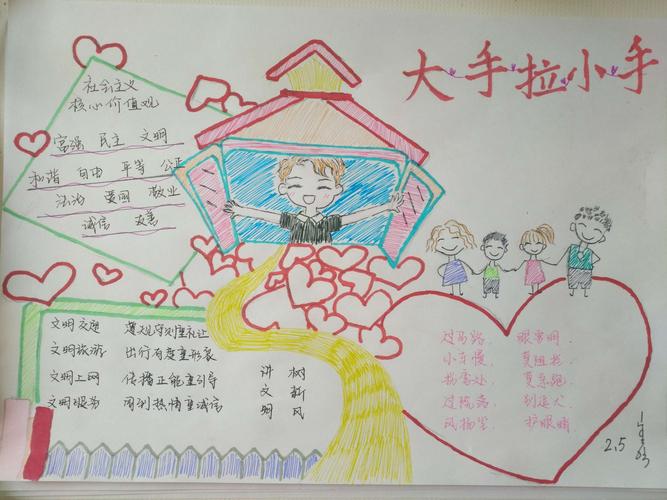 大手拉小手
社会主义
核心价值观
富强 民主 文明
和谐 自由 平等 公正
法治 爱国 敬业
诚信 友善
文明交通 遵规守则重礼让
文明旅游 出行有度重形象
文明上网 传播正能重引导
文明服务 周到热情重诚信
讲文明
树新风
过马路, 眼常明,
小车慢, 莫阻挡,
拐弯处, 莫乱跑,
别逗犬,
风扬尘, 护眼睛.
2.5